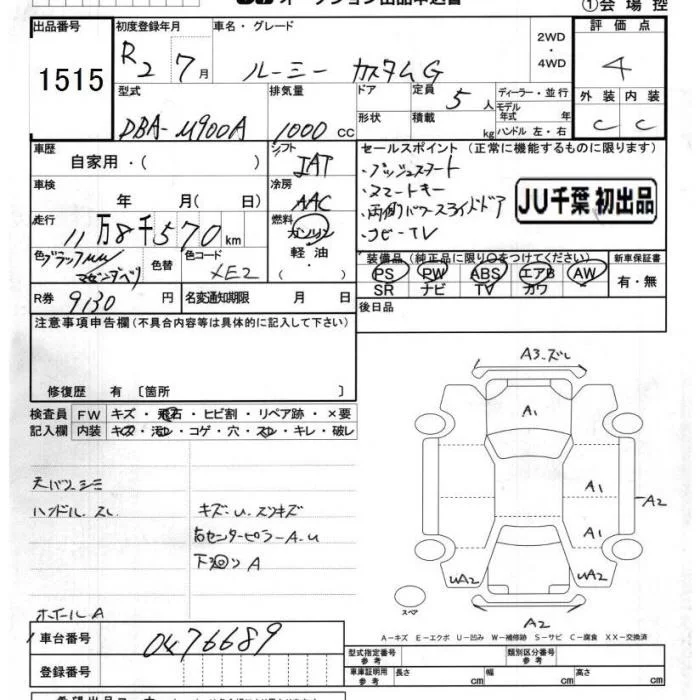 ①会場控
出品番号
1515
初度登録年月
R2 7月
車名・グレード
ルーミー カスタムG
2WD
・
4WD
評価点
4
型式
DBA-M900A
排気量
1000 cc
ドア
形状
定員 5 人
積載 kg
ディーラー・並行
モデル年式 年
ハンドル 左・右
外装 内装
C C
車歴
自家用・( )
シフト
IAT
車検
年 月( 日)
冷房
AAC
走行
11万8千570 km
燃料
ガソリン
軽油
・
色 ブラックMM
色替
色コード
XE2
R券 9130 円
名変通知期限 月 日
セールスポイント (正常に機能するものに限ります)
・プッシュスタート
・スマートキー
・両側パワースライドドア
・ナビーTV
JU千葉 初出品
装備品 (純正品に限り〇をつけてください)
PS PW ABS エアB AW
SR ナビ TV カワ
新車保証書
有・無
後日品
注意事項申告欄 (不具合内容等は具体的に記入して下さい)
修復歴 有 〔箇所 〕
検査員
記入欄
FW キズ・飛石・ヒビ割・リペア跡・×要
内装 キズ・汚れ・コゲ・穴・スレ・キレ・破レ
天バリシミ
ハンドル スレ
キズ・U・スリキズ
右センターピラーA・U
下廻りA
ホイールA
A3・ズレ
A1
A1
A2
A1
UA2
UA2
スペア
A2
A-キズ E-エクボ U-凹み W-補修跡 S-サビ C-腐食 XX-交換済
車台番号 0476689
登録番号
型式指定番号 参考
類別区分番号 参考
車庫証明用 参考
長さ cm
幅 cm
高さ cm